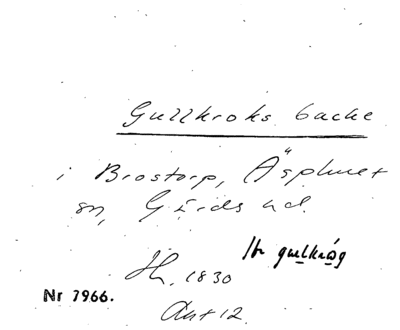 Gullkroks backe
i Brostorp, Äsphult
sn, Gärds hd.
Hr gu̲lkrå̲g
JH, 1830
Nr 7966.
Akt 12